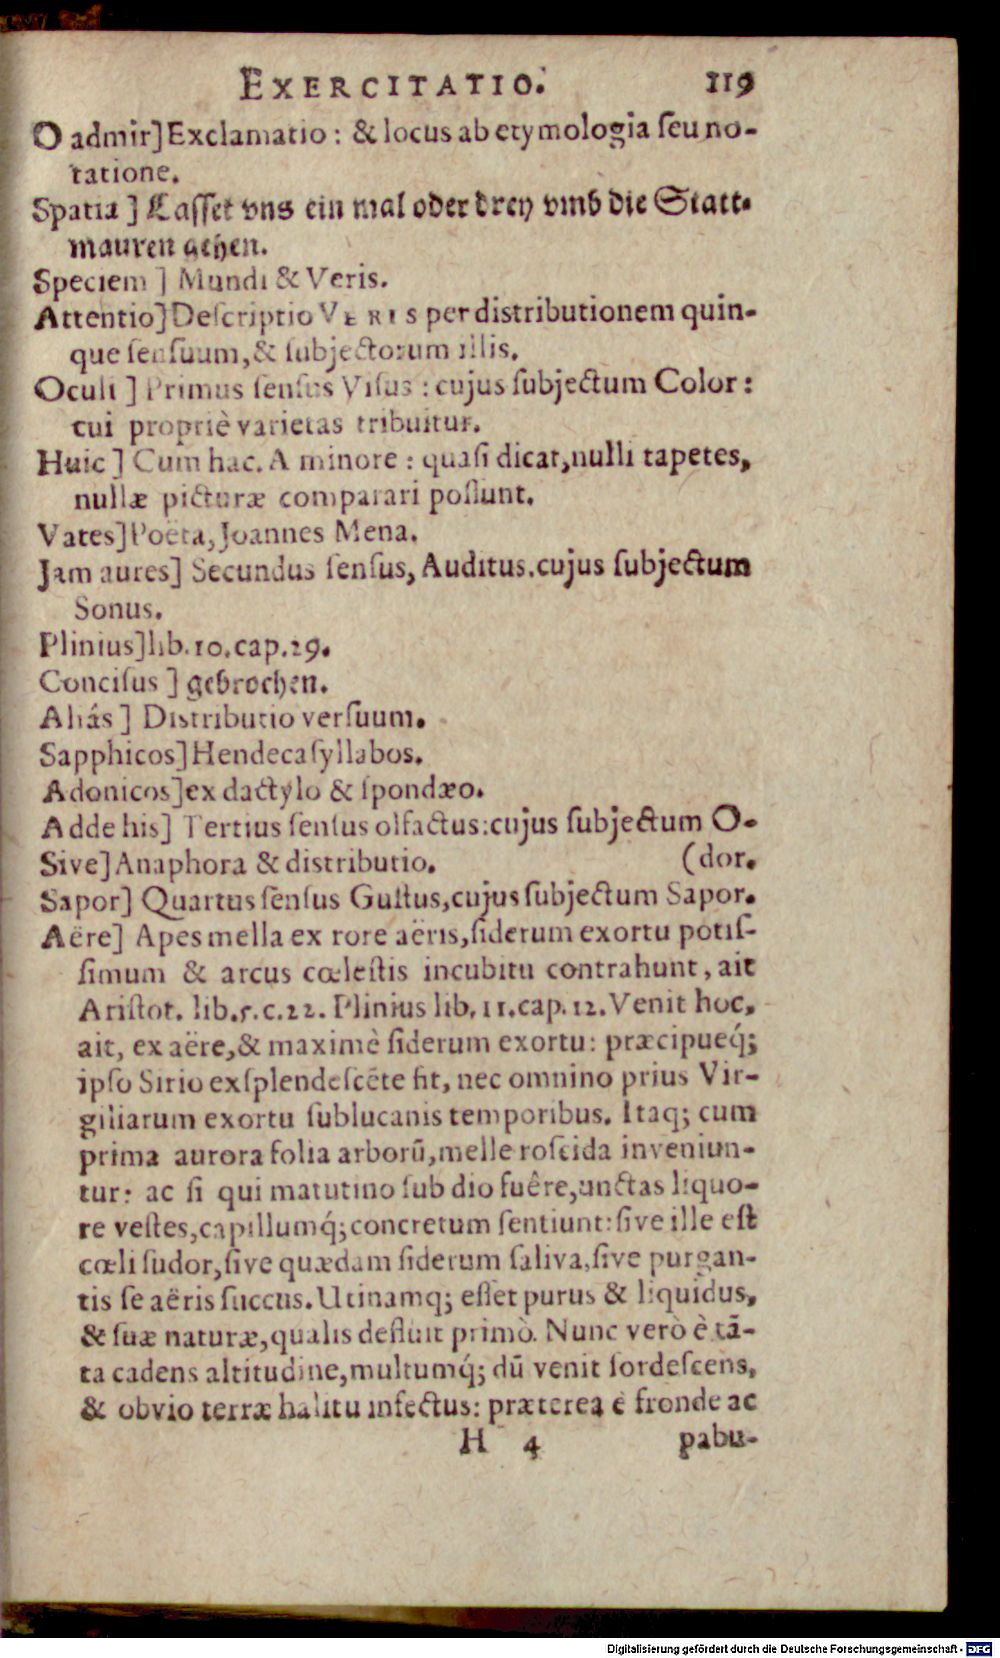 EXERCITATIO. 119
O admir] Exclamatio: & locus ab etymologia ſeu no-
tatione.
Spatia] Laſſet vns ein mal oder drey vmb die Statt-
mauren gehen.
Speciem] Mundi & Veris.
Attentio] Deſcriptio VERIS per distributionem quin-
que ſenſuum, & ſubjectorum illis.
Oculi] Primus ſenſus Viſus: cujus ſubjectum Color:
cui propriè varietas tribuitur.
Huic] Cum hac. A minore: quaſi dicat, nulli tapetes,
nullæ picturæ comparari poſſunt.
Vates] Poëta, Joannes Mena.
Jam aures] Secundus ſenſus, Auditus. cujus ſubjectum
Sonus.
Plinius] lib. 10. cap. 29.
Conciſus] gebrochen.
Aliás] Distributio verſuum.
Sapphicos] Hendecaſyllabos.
Adonicos] ex dactylo & ſpondæo.
Adde his] Tertius ſenſus olfactus: cujus ſubjectum O-
Sive] Anaphora & distributio. (dor.
Sapor] Quartus ſenſus Guſtus, cujus ſubjectum Sapor.
Aëre] Apes mella ex rore aëris, ſiderum exortu potiſ-
ſimum & arcus cœleſtis incubitu contrahunt, ait
Ariſtot. lib. 5. c. 22. Plinius lib. 11. cap. 12. Venit hoc,
ait, ex aëre, & maximè ſiderum exortu: præcipueq́;
ipſo Sirio exſplendeſcēte fit, nec omnino prius Vir-
giliarum exortu ſublucanis temporibus. Itaq; cum
prima aurora folia arborū, melle roſcida inveniun-
tur: ac ſi qui matutino ſub dio fuêre, unctas liquo-
re veſtes, capillumq́; concretum ſentiunt: ſive ille eſt
cœli ſudor, ſive quædam ſiderum ſaliva, ſive purgan-
tis ſe aëris ſuccus. Utinamq; eſſet purus & liquidus,
& ſuæ naturæ, qualis defluit primò. Nunc verò è tā-
ta cadens altitudine, multumq́; dū venit ſordeſcens,
& obvio terræ halitu infectus: præterea è fronde ac
H 4 pabu-
Digitalisierung gefördert durch die Deutsche Forschungsgemeinschaft - DFG